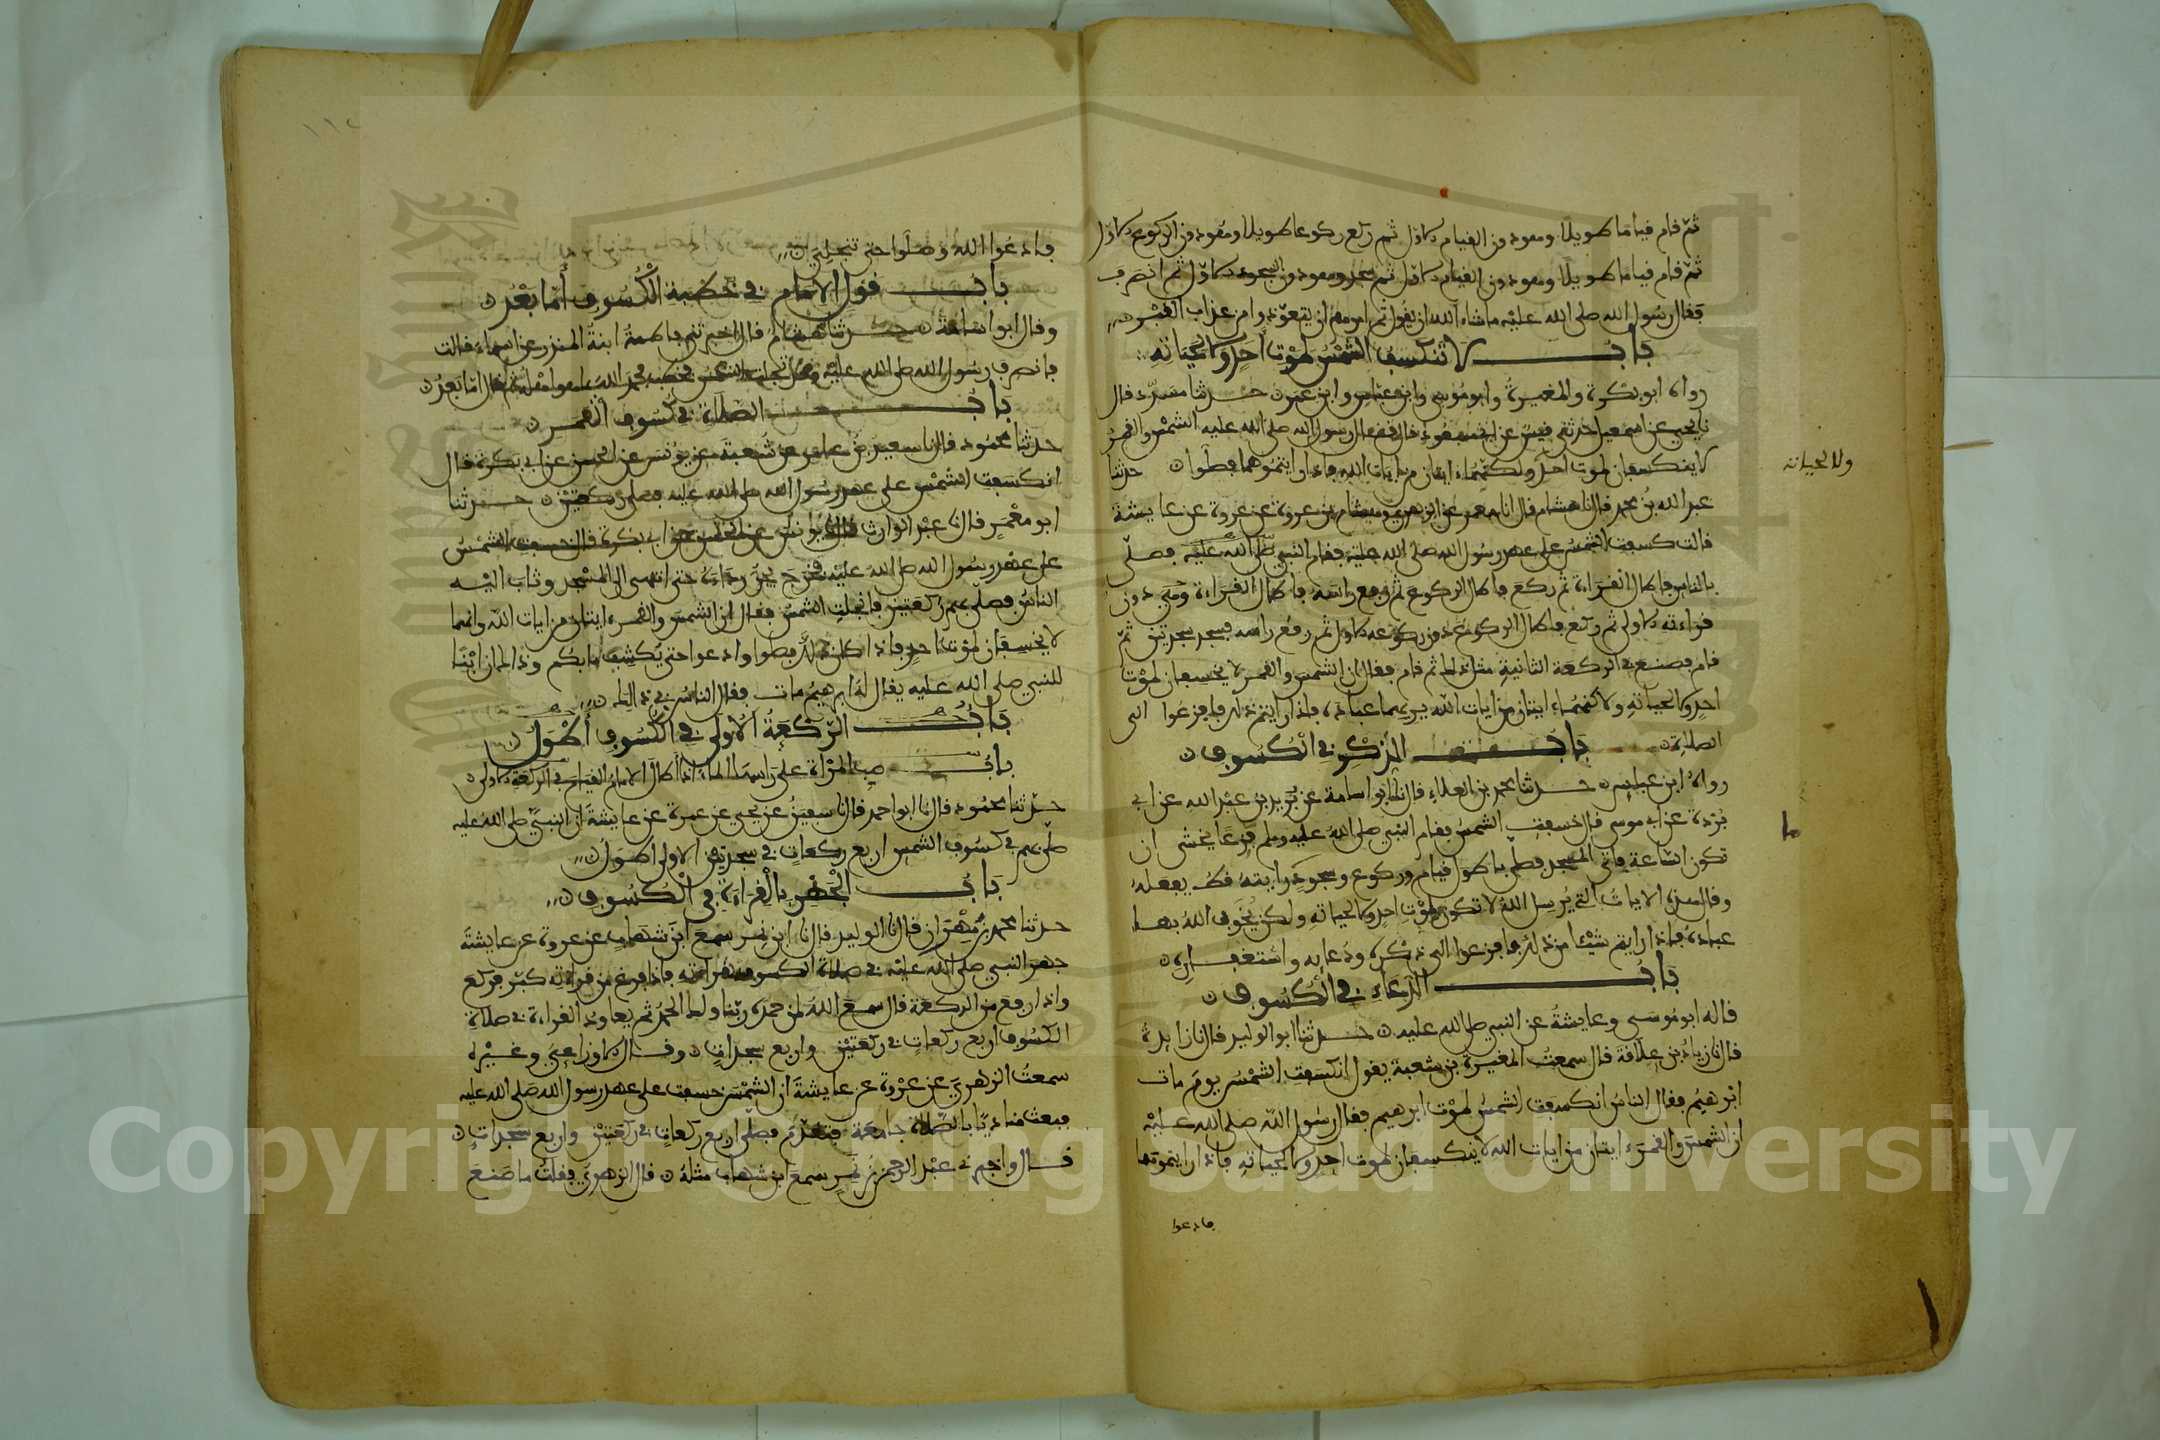 ثم قام قياما طويلا وهو دون القيام الاول ثم ركع ركوعا طويلا وهو دون الركوع الاول
ثم قام قياما طويلا وهو دون القيام الاول ثم سجد وهو دون السجود الاول ثم انصرف
فقال رسول الله صلى الله عليه ما شاء الله ان يقول ثم امرهم ان يتعوذوا من عذاب القبر
باب لا تنكسف الشمس لموت احد ولا لحياته
رواه ابو بكرة والمغيرة وابو موسى وابن عباس وابن عمر حدثنا مسدد قال
نا يحيى عن اسمعيل حدثني قيس عن ابي مسعود قال قال رسول الله صلى الله عليه الشمس والقمر
لا ينكسفان لموت احد ولكنهما ايتان من ايات الله فاذا رايتموهما فصلوا حدثنا
ولا لحياته
عبد الله بن محمد قال نا هشام قال انا معمر عن الزهري وهشام بن عروة عن عروة عن عايشة
قالت كسفت الشمس على عهد رسول الله صلى الله عليه فقام النبي صلى الله عليه فصلى
بالناس فاطال القراءة ثم ركع فاطال الركوع ثم رفع راسه فاطال القراءة وهي دون
قراءته الاولى ثم ركع فاطال الركوع دون ركوعه الاول ثم رفع راسه فسجد سجدتين ثم
قام فصنع في الركعة الثانية مثل ذلك ثم قام فقال ان الشمس والقمر لا يخسفان لموت
احد ولا لحياته ولاكنهما ايتان من ايات الله يريهما عباده فاذا رايتم ذلك فافزعوا الى
الصلاة باب الذكر في الكسوف
رواه ابن عباس حدثنا محمد بن العلاء قال نا ابو اسامة عن بريد بن عبد الله عن ابي
بردة عن ابي موسى قال خسفت الشمس فقام النبي صلى الله عليه وسلم فزعا يخشى ان
تكون الساعة فاتى المسجد فصلى باطول قيام وركوع وسجود رايته قط يفعله
وقال هذه الايات التي يرسل الله لا تكون لموت احد ولا لحياته ولكن يخوف الله بها
عباده فاذا رايتم شيئا من ذلك فافزعوا الى ذكره ودعايه واستغفاره
باب الدعاء في الكسوف
قاله ابو موسى وعايشة عن النبي صلى الله عليه حدثنا ابو الوليد قال نا زايدة
قال نا زياد بن علاقة قال سمعت المغيرة بن شعبة يقول انكسفت الشمس يوم مات
ابرهيم فقال الناس انكسفت الشمس لموت ابرهيم فقال رسول الله صلى الله عليه
ان الشمس والقمر ايتان من ايات الله لا ينكسفان لموت احد ولا لحياته فاذا رايتموها
فادعوا
فادعوا الله وصلوا حتى تنجلي
باب قول الامام في خطبة الكسوف أما بعد
وقال ابو اسامة حدثنا هشام قال اخبرتني فاطمة ابنة المنذر عن اسماء قالت
فانصرف رسول الله صلى الله عليه وقد تجلت الشمس فخطب فحمد الله بما هو اهله ثم قال اما بعد
باب الصلاة في كسوف القمر
حدثنا محمود قال نا سعيد بن عامر عن شعبة عن يونس عن الحسن عن ابي بكرة قال
انكسفت الشمس على عهد رسول الله صلى الله عليه فصلى ركعتين حدثنا
ابو معمر قال نا عبد الوارث قال نا يونس عن الحسن عن ابي بكرة قال خسفت الشمس
على عهد رسول الله صلى الله عليه فخرج يجر رداءه حتى انتهى الى المسجد وثاب اليه
الناس فصلى بهم ركعتين فانجلت الشمس فقال ان الشمس والقمر ايتان من ايات الله وانهما
لا يخسفان لموت احد فاذا كان ذلك فصلوا وادعوا حتى يكشف ما بكم وذلك ان ابنا
للنبي صلى الله عليه يقال له ابرهيم مات فقال الناس في ذلك
باب الركعة الأولى في الكسوف أطول
باب صب المرأة على راسها الماء اذا اطال الامام القيام في الركعة الاولى
حدثنا محمود قال نا ابو احمد قال نا سفين عن يحيى عن عمرة عن عايشة ان النبي صلى الله عليه
صلى بهم في كسوف الشمس اربع ركعات في سجدتين الاولى اطول
باب الجهر بالقراءة في الكسوف
حدثنا محمد بن مهران قال نا الوليد قال نا ابن نمر سمع ابن شهاب عن عروة عن عايشة
جهر النبي صلى الله عليه في صلاة الكسوف بقراءته فاذا فرغ من قراءته كبر فركع
واذا رفع من الركعة قال سمع الله لمن حمده ربنا ولك الحمد ثم يعاود القراءة في صلاة
الكسوف اربع ركعات في ركعتين واربع سجدات وقال الاوزاعي وغيره
سمعت الزهري عن عروة عن عايشة ان الشمس خسفت على عهد رسول الله صلى الله عليه
فبعث مناديا بالصلاة جامعة فتقدم فصلى اربع ركعات في ركعتين واربع سجدات
قال واخبرني عبد الرحمن بن نمر سمع ابن شهاب مثله قال الزهري فقلت ما صنع
Copyright © King Saud University